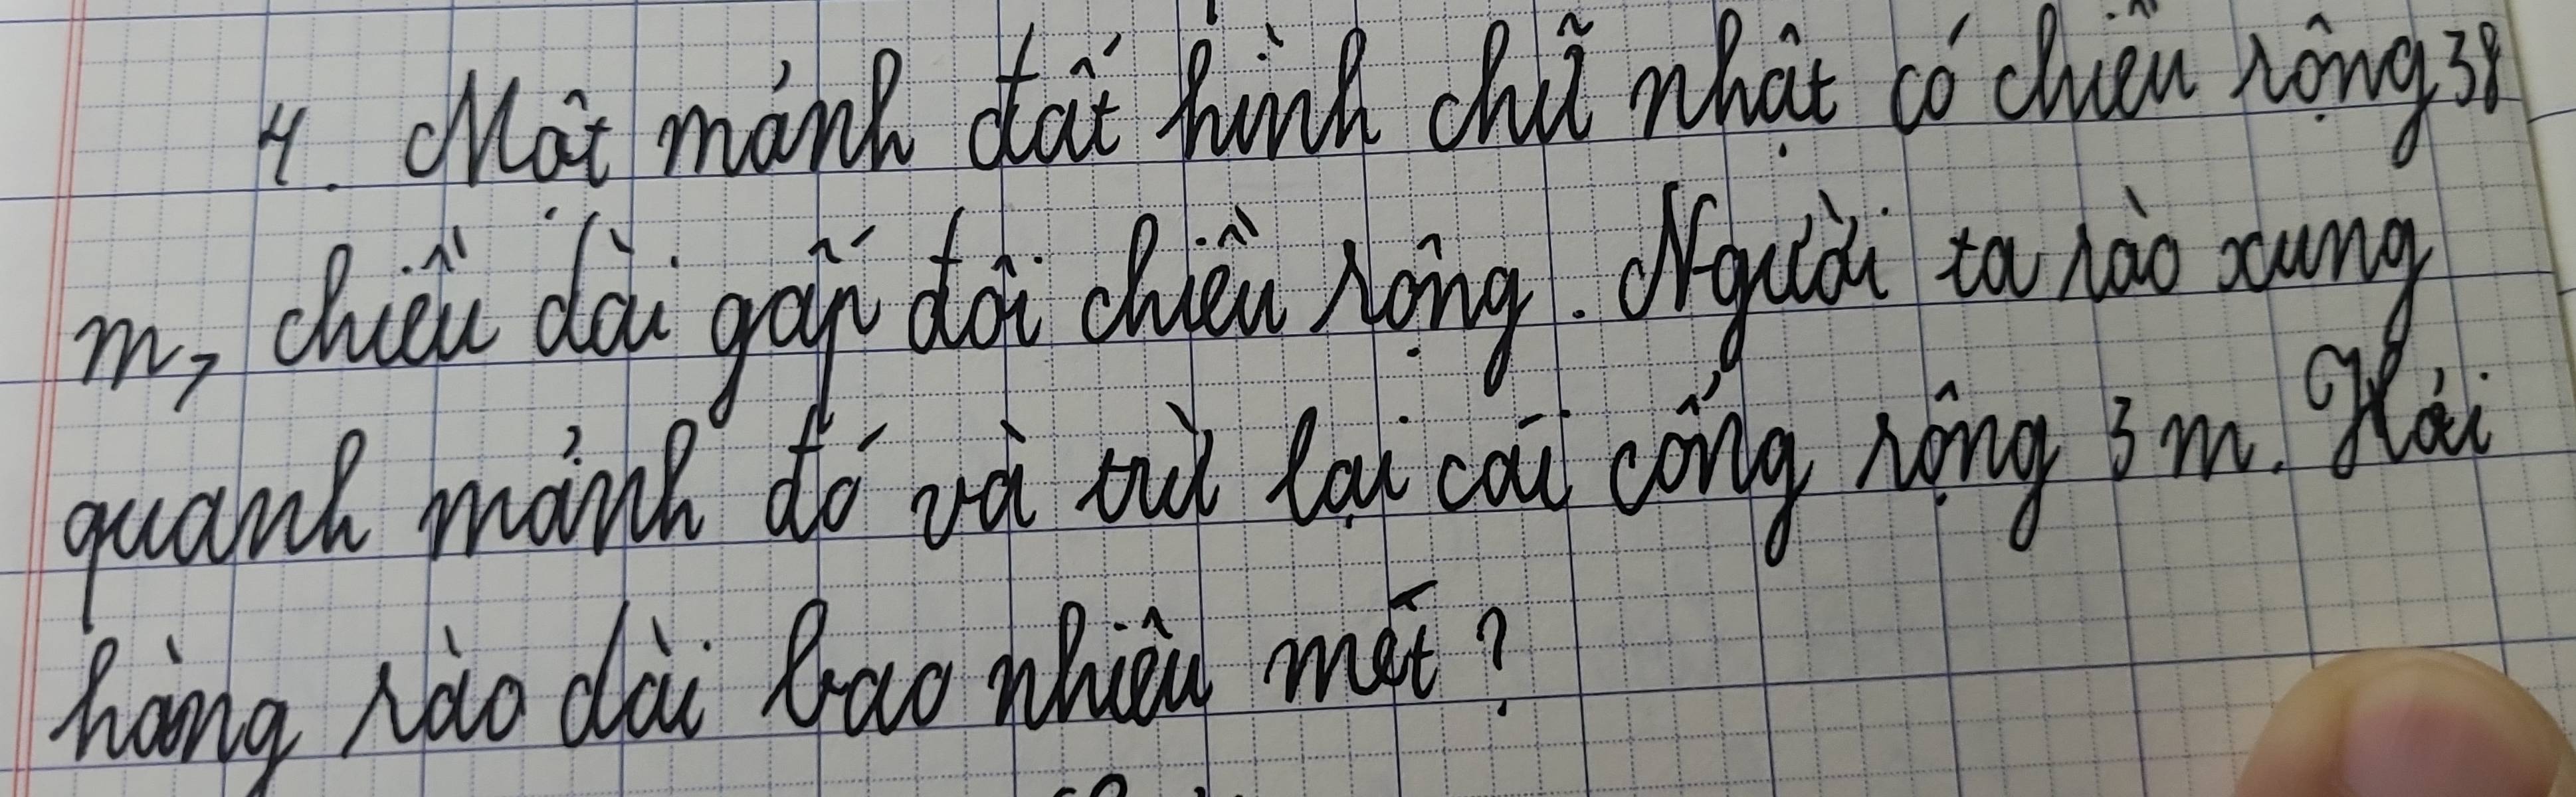 4. Một mảnh đất hình chữ nhật có chiều rộng 38
m, chiều dài gấp đôi chiều rộng. Người ta rào xung
quanh mảnh đó và trừ lại cái cổng rộng 3 m. Hỏi
hàng rào dài bao nhiêu mét?